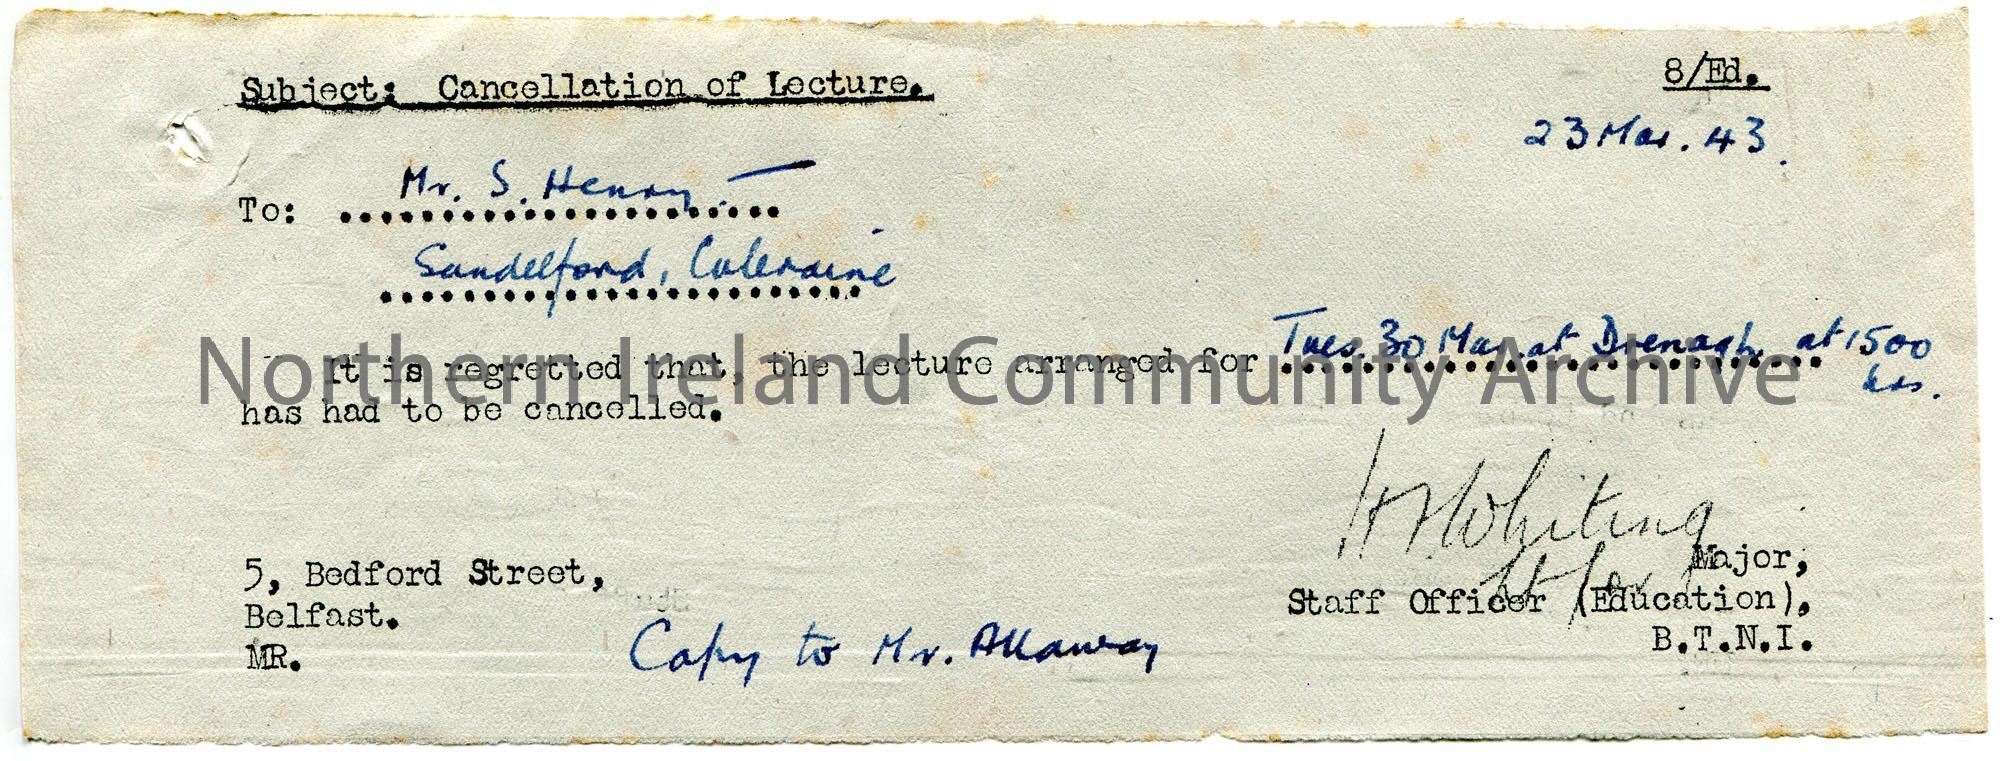 Subject: Cancellation of Lecture.
8/Ed.
23 Mar. 43.
To: Mr. S. Henry.
Sandelford, Coleraine
It is regretted that, the lecture arranged for Tues. 30 Mar. at Drenagh at 1500 hrs.
has had to be cancelled.
Northern Ireland Community Archive
Whiting
Major,
Staff Officer (Education),
B.T.N.I.
5, Bedford Street,
Belfast.
MR.
Copy to Mr. Allaway